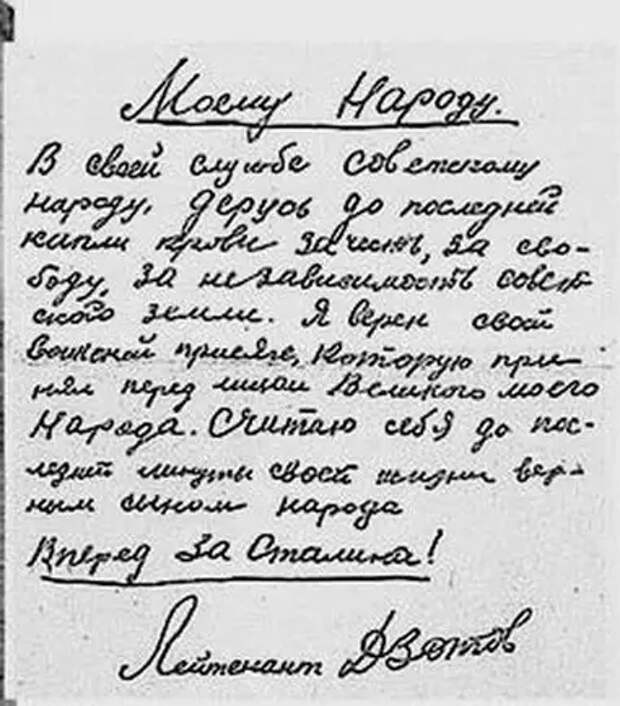 Моему Народу.
В своей службе советскому
народу, дерусь до последней
капли крови за честь, за сво-
боду, за независимость совет-
ского земли. Я верен своей
военной присяге, которую при-
нял перед лицом Великого моего
Народа. Считаю себя до пос-
ледней минуты своей жизни вер-
ным сыном народа
Вперед за Сталина!
Лейтенант Д Зотов